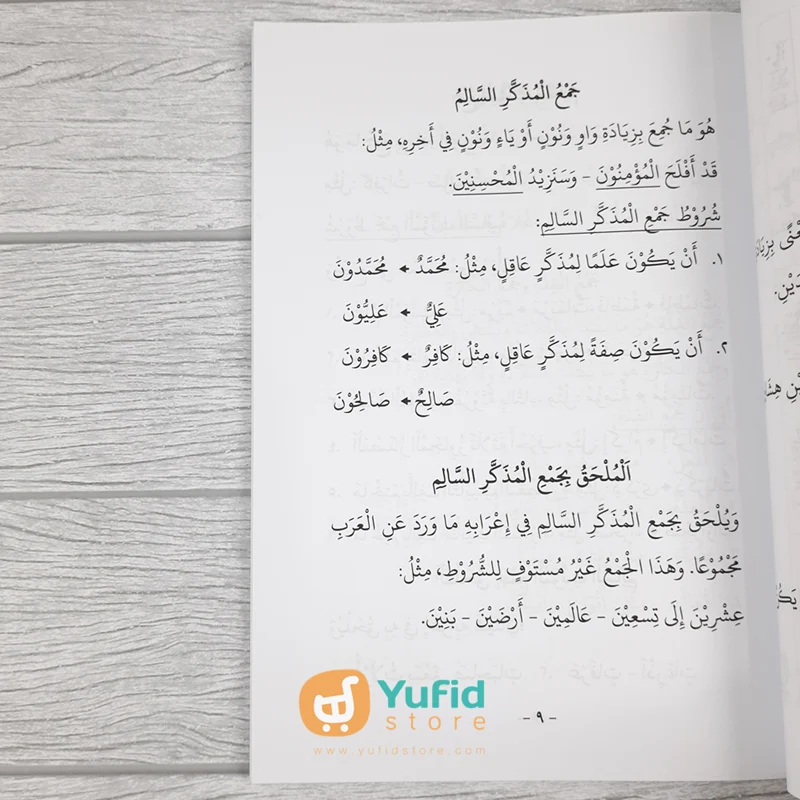 جَمْعُ الْمُذَكَّرِ السَّالِمُ
هُوَ مَا جُمِعَ بِزِيَادَةِ وَاوٍ وَنُوْنٍ أَوْ يَاءٍ وَنُوْنٍ فِي أَخِرِهِ، مِثْلُ:
قَدْ أَفْلَحَ الْمُؤْمِنُوْنَ - وَسَنَزِيْدُ الْمُحْسِنِيْنَ.
شُرُوْطُ جَمْعِ الْمُذَكَّرِ السَّالِمِ:
١. أَنْ يَكُوْنَ عَلَمًا لِمُذَكَّرٍ عَاقِلٍ، مِثْلُ: مُحَمَّدٌ ← مُحَمَّدُوْنَ
عَلِيٌّ ← عَلِيُّوْنَ
٢. أَنْ يَكُوْنَ صِفَةً لِمُذَكَّرٍ عَاقِلٍ، مِثْلُ: كَافِرٌ ← كَافِرُوْنَ
صَالِحٌ ← صَالِحُوْنَ
اَلْمُلْحَقُ بِجَمْعِ الْمُذَكَّرِ السَّالِمِ
وَيُلْحَقُ بِجَمْعِ الْمُذَكَّرِ السَّالِمِ فِي إِعْرَابِهِ مَا وَرَدَ عَنِ الْعَرَبِ
مَجْمُوْعًا. وَهَذَا الْجَمْعُ غَيْرُ مُسْتَوْفٍ لِلشُّرُوْطِ، مِثْلُ:
عِشْرِيْنَ إِلَى تِسْعِيْنَ - عَالَمِيْنَ - أَرْضَيْنَ - بَنِيْنَ.
Yufid
store
www.yufidstore.com
- ٩ -